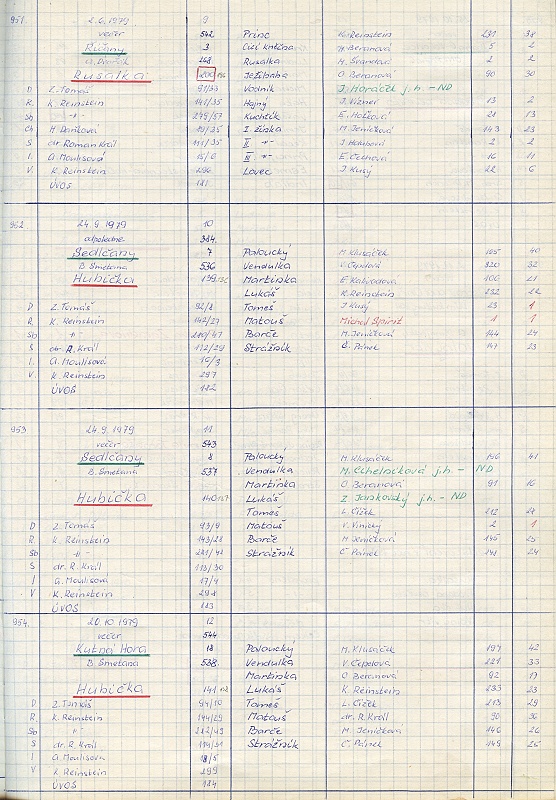 951. 2.6.1979 9
večer 542 Princ K. Reinstein 231 38
Říčany 3 Cizí kněžna H. Beranová 5 2
A. Dvořák 168 Rusalka M. Švandová 2 2
Rusalka 200 Ježibaba O. Beranová 90 30
D Z. Tomáš 91/33 Vodník J. Horáček j.h. - ND
R. K. Reinstein 141/35 Hajný J. Vizner 13 2
Sb -"- 279/57 Kuchtík E. 21 13
Ch H. Daňková 19/35 I. žínka M. Jeníčková 143 23
S dr Roman Král 111/35 II -"- J. Holubová 2 2
I. A. Moulisová 15/6 III -"- E. 16 11
V K. Reinstein 296 Lovec J. Kusý 22 6
ÚVOS 181
952 24.9.1979 10
odpoledne 384
Sedlčany 7 Paloucký M. Klusáček 195 40
B. Smetana 536 Vendulka V. Čepelová 320 32
Hubička 139 Martinka E. 100 21
Lukáš K. Reinstein 232 22
D Z. Tomáš 92/8 Tomeš J. Kusý 23 1
R K. Reinstein 142/27 Matouš Michal Spirit 1 1
Sb -"- 280/47 Barče M. Jeníčková 144 24
S dr. R. Král 112/29 Strážník Č. Pánek 147 23
I. A. Moulisová 16/3
V. K. Reinstein 297
ÚVOS 182
953 24.9.1979 11
večer 543
Sedlčany 8 Paloucký M. Klusáček 196 41
B. Smetana 537 Vendulka M. Cihelníková j.h. - ND
Martinka O. Beranová 91 16
Hubička 140 Lukáš Z. Jankovský j.h. - ND
Tomeš L. Čížek 212 28
D Z. Tomáš 93/9 Matouš V. Vinický 2 1
R. K. Reinstein 143/28 Barče M. Jeníčková 145 25
Sb -"- 281/48 Strážník Č. Pánek 148 24
S dr. R. Král 113/30
I A. Moulisová 17/4
V K. Reinstein 298
ÚVOS 183
954. 20.10.1979 12
večer 544
Kutná Hora 18 Paloucký M. Klusáček 197 42
B. Smetana 538 Vendulka V. Čepelová 221 33
Martinka O. Beranová 92 17
Hubička 141 Lukáš K. Reinstein 233 23
D Z. Tomáš 94/10 Tomeš L. Čížek 213 29
R. K. Reinstein 144/29 Matouš dr. R. Král 90 36
Sb -"- 282/49 Barče M. Jeníčková 146 26
S dr. R. Král 114/31 Strážník Č. Pánek 149 25
I A. Moulisová 18/5
V K. Reinstein 299
ÚVOS 184